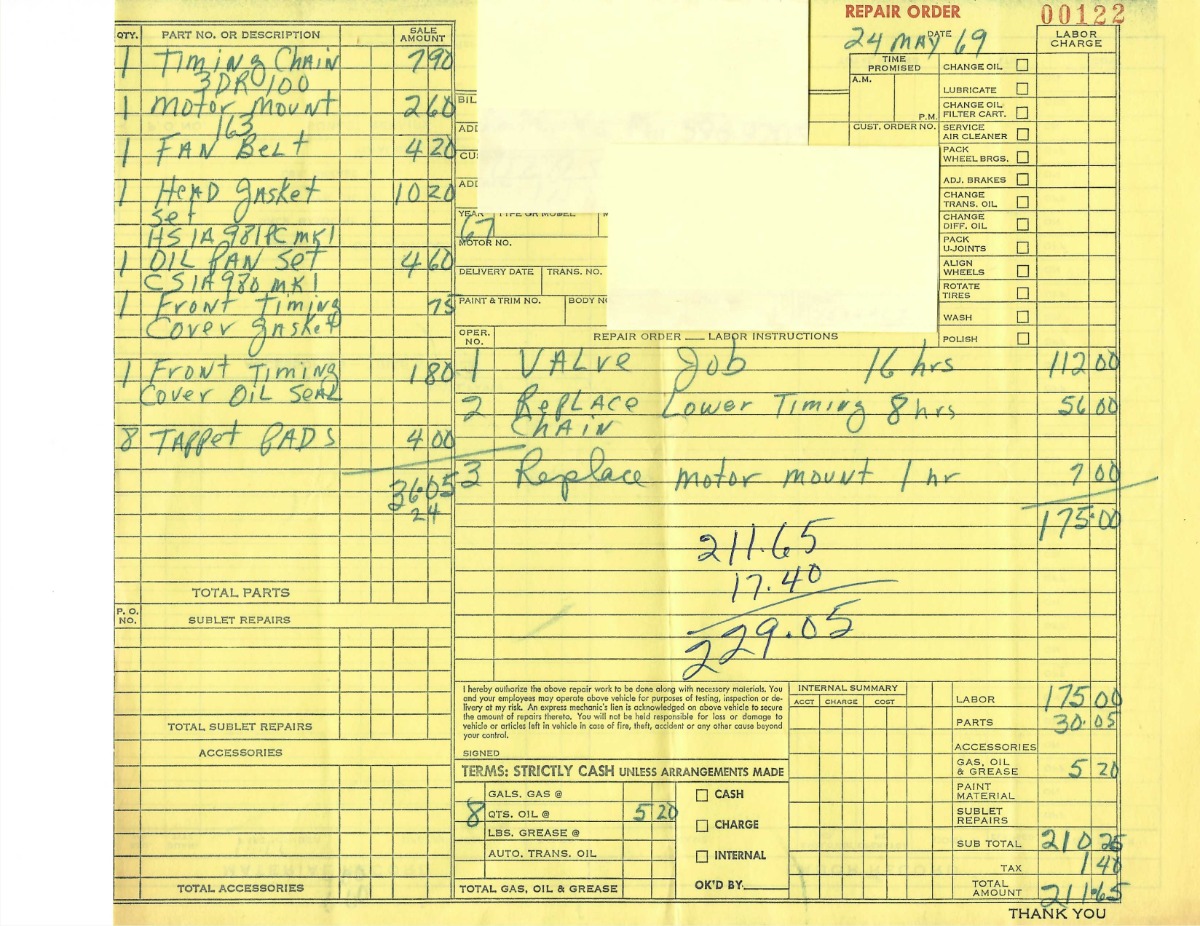 REPAIR ORDER 00122
QTY. PART NO. OR DESCRIPTION SALE AMOUNT
1 Timing Chain 7 90
3DR0100
1 Motor Mount 2 60
163
1 FAN Belt 4 20
1 HeAD gasket 10 20
set
HS1A981PC mk1
1 OIL PAN Set 4 60
CS1A980 mk1
1 Front Timing 75
Cover gasket
1 Front Timing 1 80
Cover OIL SeAL
8 TAPPet PADS 4 00
36.05
24
TOTAL PARTS
P. O. NO. SUBLET REPAIRS
TOTAL SUBLET REPAIRS
ACCESSORIES
TOTAL ACCESSORIES
24 MAY 69
DATE
LABOR CHARGE
TIME PROMISED
A.M.
P.M.
CUST. ORDER NO.
CHANGE OIL
LUBRICATE
CHANGE OIL FILTER CART.
SERVICE AIR CLEANER
PACK WHEEL BRGS.
ADJ. BRAKES
CHANGE TRANS. OIL
CHANGE DIFF. OIL
PACK U-JOINTS
ALIGN WHEELS
ROTATE TIRES
WASH
POLISH
YEAR TYPE OR MODEL
67
MOTOR NO.
DELIVERY DATE TRANS. NO.
PAINT & TRIM NO. BODY
OPER. NO. REPAIR ORDER __ LABOR INSTRUCTIONS
1 VALVe Job 16 hrs 112 00
2 RePLACe Lower Timing 8 hrs 56 00
CHAIN
3 Replace motor mount 1 hr 7 00
175.00
211.65
17.40
229.05
I hereby authorize the above repair work to be done along with necessary materials. You
and your employees may operate above vehicle for purposes of testing, inspection or de-
livery at my risk. An express mechanic's lien is acknowledged on above vehicle to secure
the amount of repairs thereto. You will not be held responsible for loss or damage to
vehicle or articles left in vehicle in case of fire, theft, accident or any other cause beyond
your control.
SIGNED
TERMS: STRICTLY CASH UNLESS ARRANGEMENTS MADE
GALS. GAS @
8 QTS. OIL @ 5 20
LBS. GREASE @
AUTO. TRANS. OIL
TOTAL GAS, OIL & GREASE
CASH
CHARGE
INTERNAL
OK'D BY
INTERNAL SUMMARY
ACCT CHARGE COST
LABOR 175 00
PARTS 30.05
ACCESSORIES
GAS, OIL & GREASE 5 20
PAINT MATERIAL
SUBLET REPAIRS
SUB TOTAL 210 25
TAX 1 40
TOTAL AMOUNT 211.65
THANK YOU